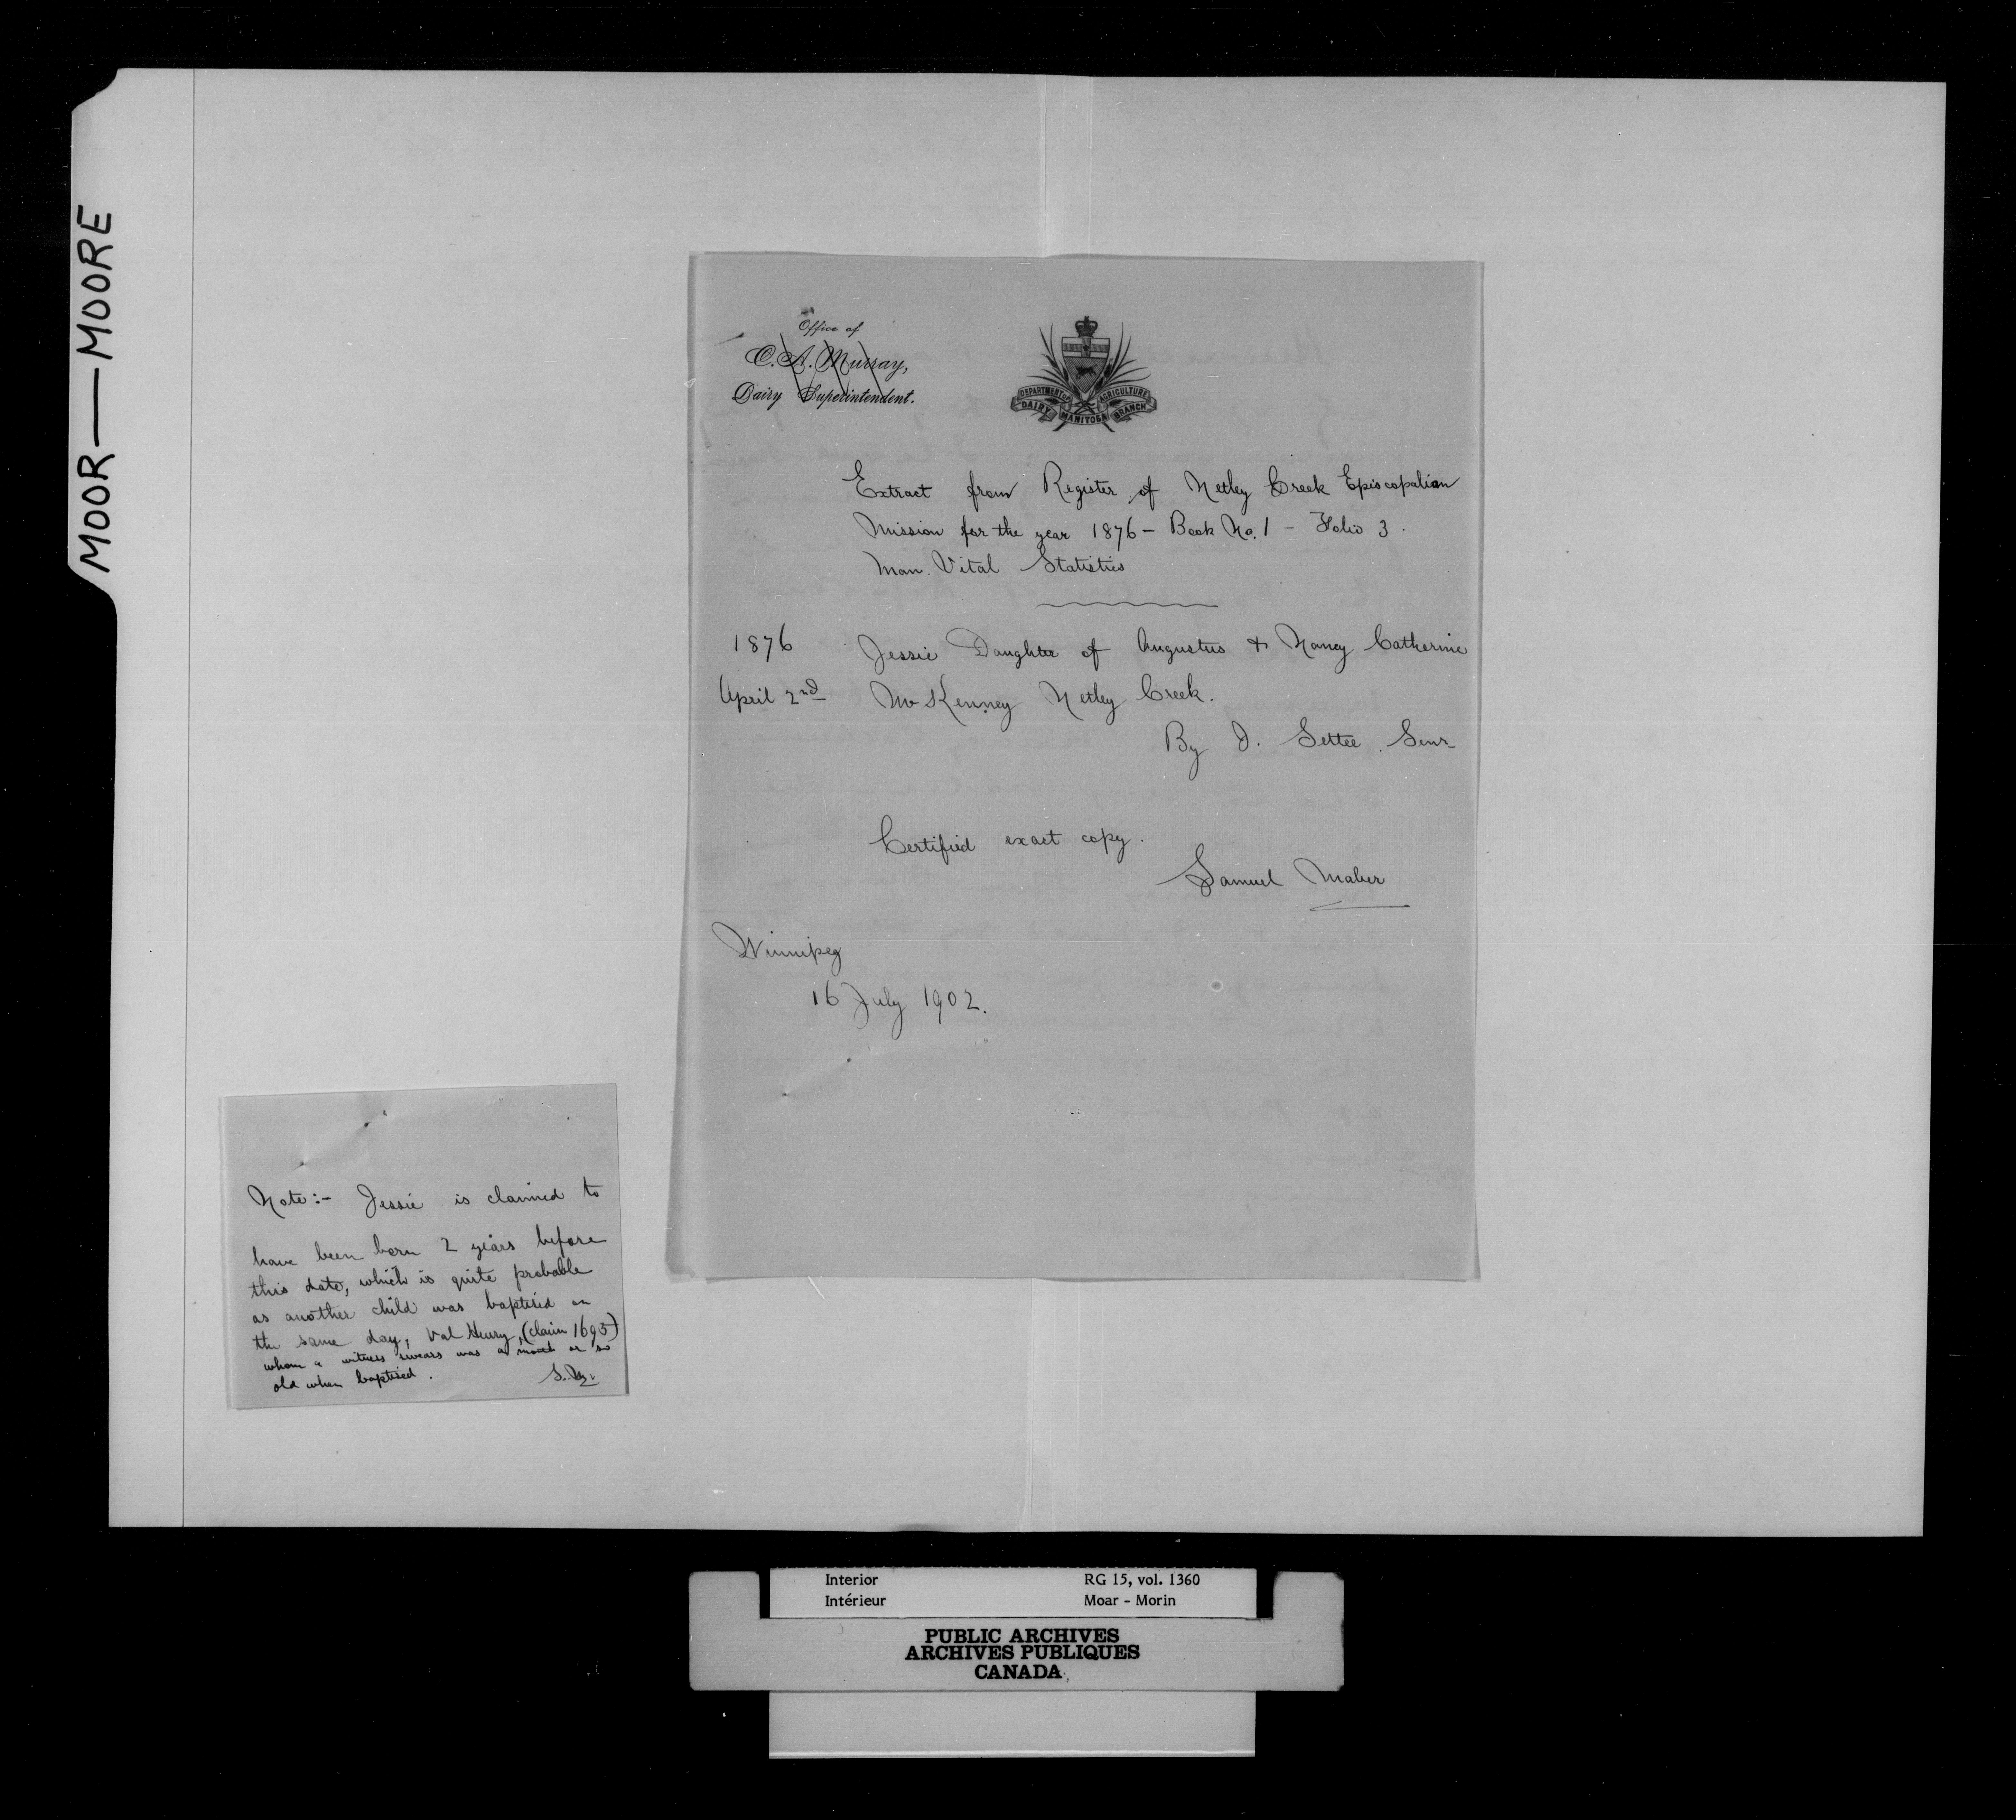 MOOR — MOORE
Office of
C. A. Murray,
Dairy Superintendent.
DEPARTMENT OF AGRICULTURE
DAIRY MANITOBA BRANCH
Extract from Register of Netley Creek Episcopalian
Mission for the year 1876 – Book No. 1 – Folio 3.
Man. Vital Statistics
1876 Jessie Daughter of Augustus & Nancy Catherine
April 2nd McKenney Netley Creek.
By J. Settee. Senr
Certified exact copy.
Samuel Maber
Winnipeg
16 July 1902.
Note:- Jessie is claimed to
have been born 2 years before
this date, which is quite probable
as another child was baptised on
the same day, Val Henry, (claim 1693)
whom a witness swears was a month or so
old when baptised.
S. M.
Interior RG 15, vol. 1360
Intérieur Moar - Morin
PUBLIC ARCHIVES
ARCHIVES PUBLIQUES
CANADA